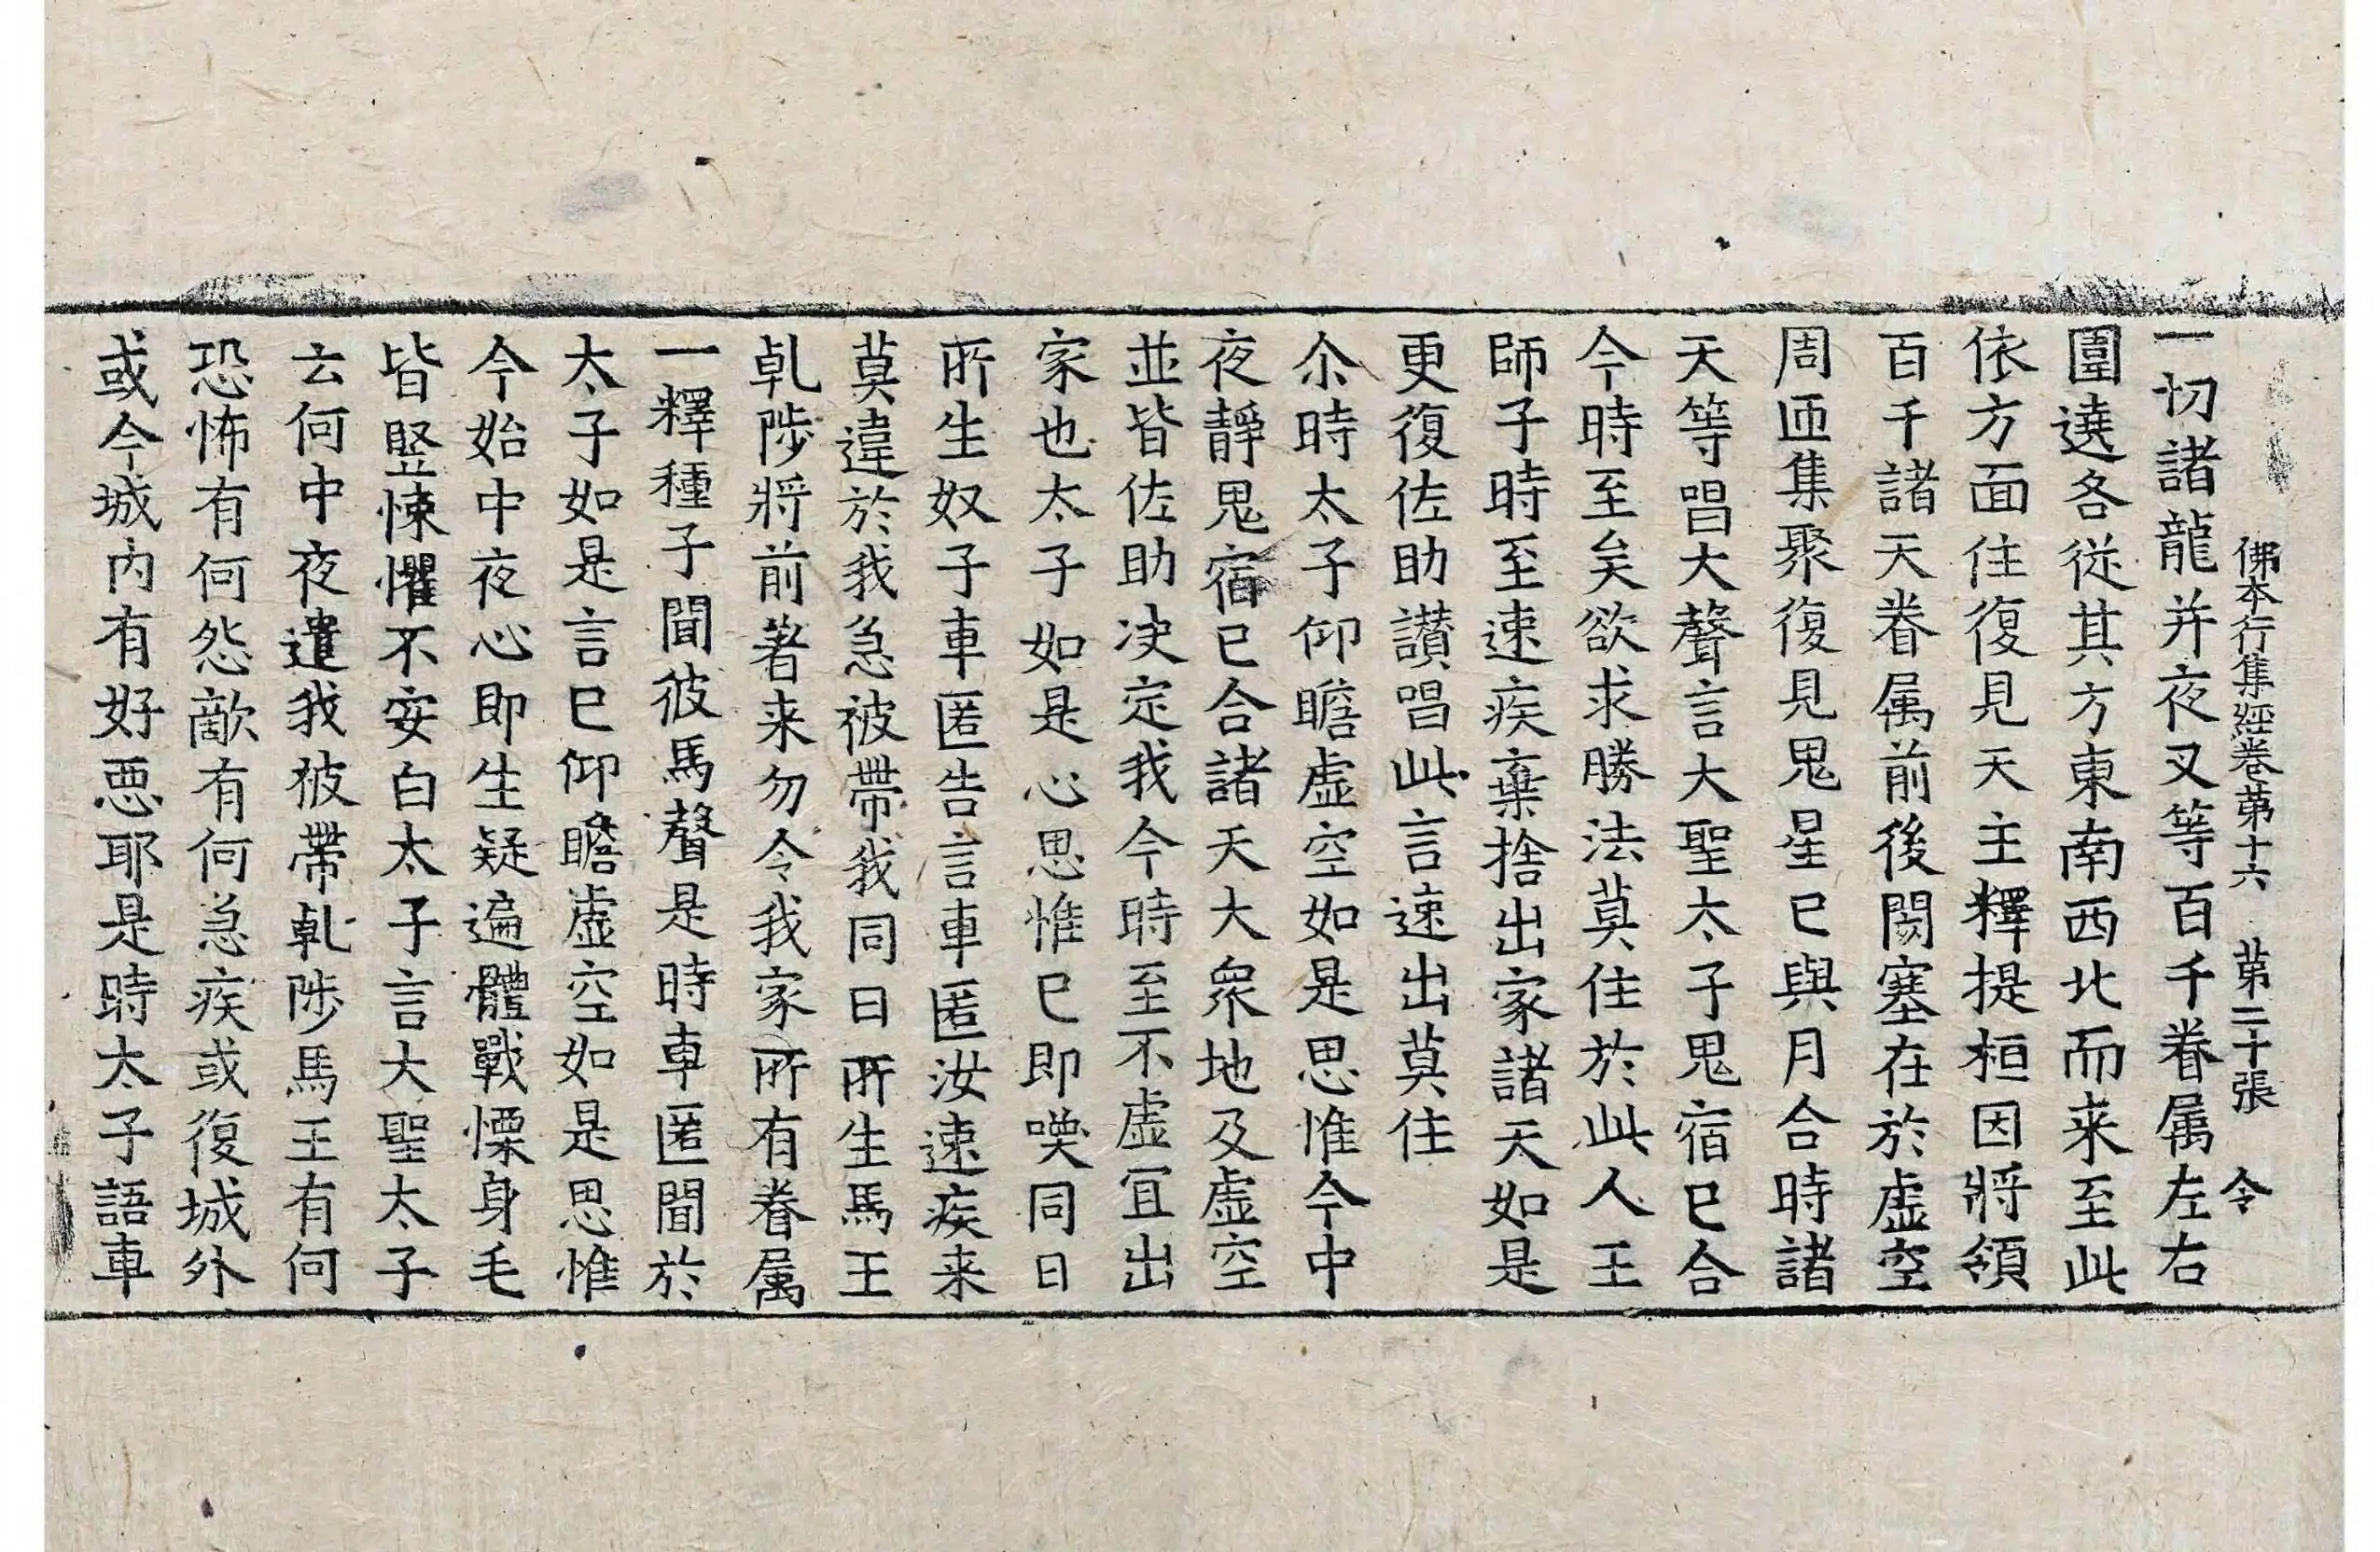 佛本行集經卷第十六 第二十張 令
一切諸龍并夜叉等百千眷属左右
圍遶各從其方東南西北而来至此
依方面住復見天主釋提桓因將領
百千諸天眷属前後閦塞在於虚空
周迊集聚復見鬼星已與月合時諸
天等唱大聲言大聖太子鬼宿已合
今時至矣欲求勝法莫住於此人王
師子時至速疾棄捨出家諸天如是
更復佐助讃唱此言速出莫住
尒時太子仰瞻虚空如是思惟今中
夜靜鬼宿已合諸天大衆地及虚空
並皆佐助决定我今時至不虚冝出
家也太子如是心思惟已即喚同日
所生奴子車匿告言車匿汝速疾来
莫違於我急被帶我同日所生馬王
乹陟將前著来勿令我家所有眷属
一釋種子聞彼馬聲是時車匿聞於
太子如是言已仰瞻虚空如是思惟
今始中夜心即生疑遍體戰慄身毛
皆竪悚懼不安白太子言大聖太子
云何中夜遣我彼帶乹陟馬王有何
恐怖有何怨敵有何急疾或復城外
或今城内有好惡耶是時太子語車